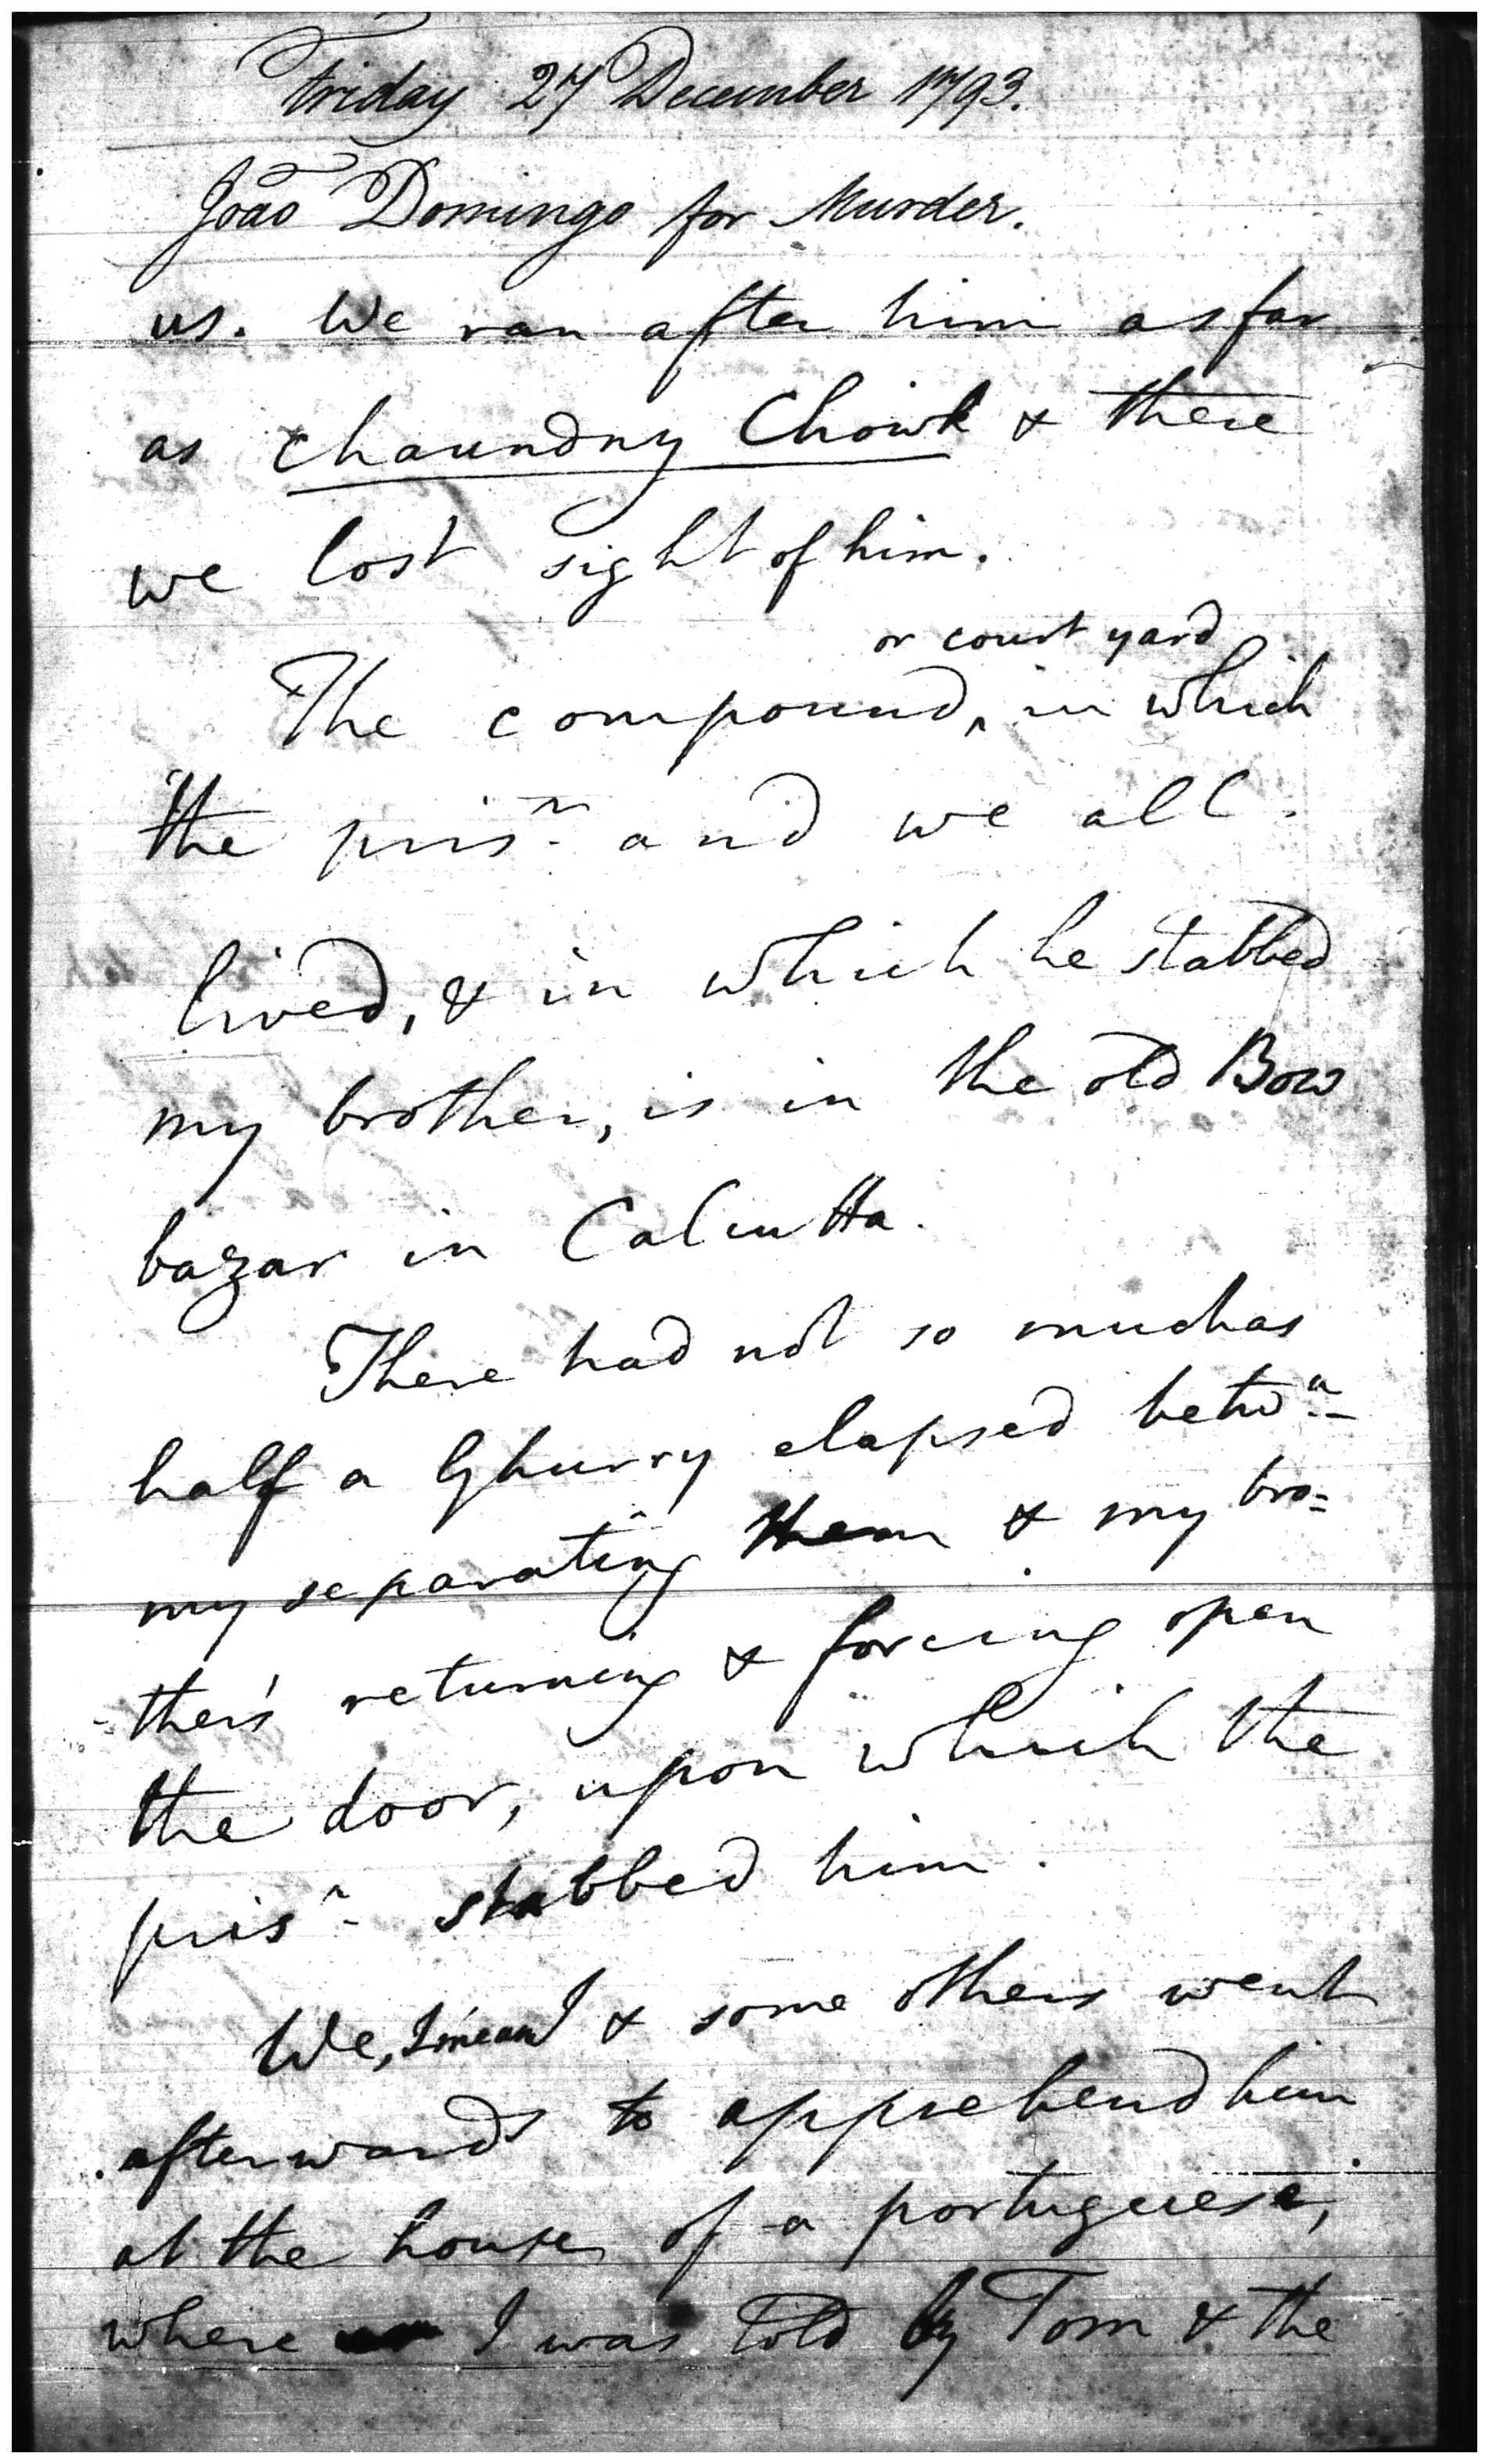 Friday 27 December 1793.
João Domingo for Murder.
us. We ran after him as far
as Chaundny Chowk & there
we lost sight of him.
or court yard
The compound, in which
the pris.r and we all
lived, & in which he stabbed
my brother, is in the old Bow
bazar in Calcutta.
There had not so much as
half a Ghurry elapsed betw.n
my separating them & my bro=
-ther's returning & forcing open
the door, upon which the
pris.r stabbed him.
We, I mean I & some others went
afterwards to apprehend him
at the house of a portuguese,
where I was told by Tom & the